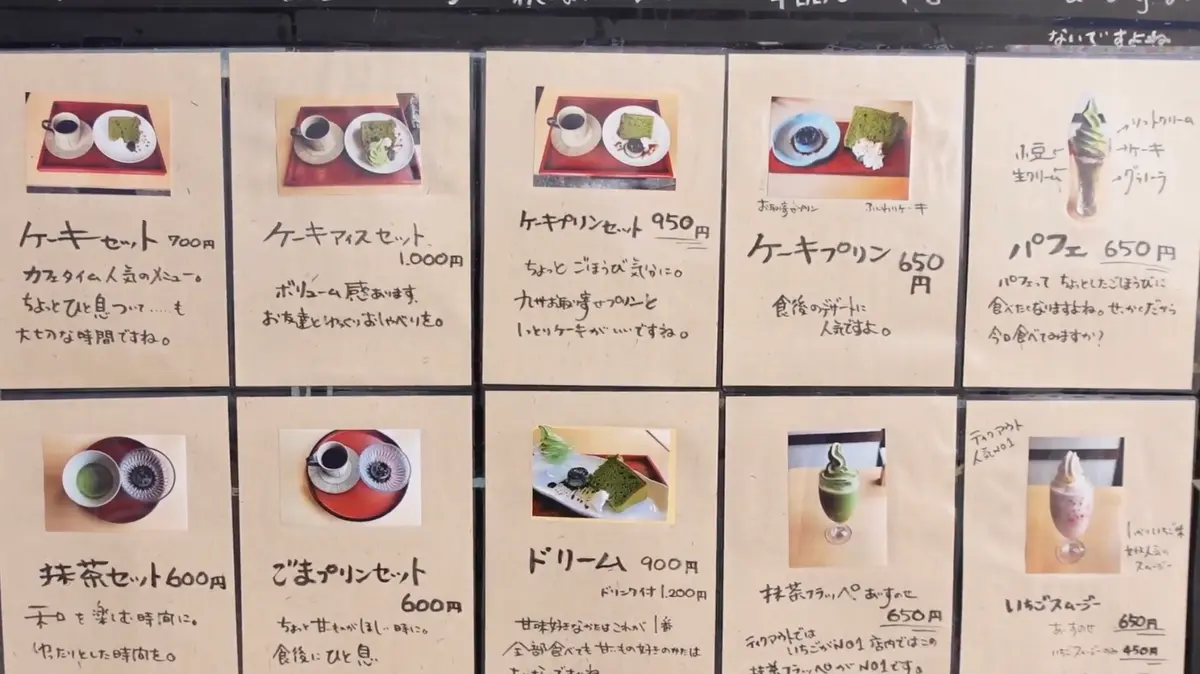 ないですよね
ケーキセット 700円
カフェタイム人気のメニュー。
ちょっとひと息ついて.....も
大切な時間ですね。
ケーキアイスセット
1.000円
ボリューム感あります。
お友達とゆっくりおしゃべりを。
ケーキプリンセット 950円
ちょっとごほうび気分に。
九州お取り寄せプリンと
しっとりケーキがいいですね。
お取寄せプリン
ふんわりケーキ
ケーキプリン 650円
食後のデザートに
人気ですよ。
ソフトクリーム
小豆
ケーキ
生クリーム
グラノーラ
パフェ 650円
パフェって ちょっとしたごほうびに
食べたくなりますよね。せっかくだから
今日食べてみますか?
抹茶セット 600円
和を楽しむ時間に。
ゆったりとした時間を。
ごまプリンセット
600円
ちょっと甘いものがほしい時に。
食後にひと息
ドリーム 900円
ドリンク付 1.200円
甘味好きなかたはこれが1番
全部食べても甘いもの好きのかたは
抹茶フラッペ あいすのせ
650円
テイクアウトでは
いちごがNO1 店内ではこの
抹茶フラッペがNO1です。
テイクアウト
人気NO1
いちごスムージー
あいすのせ 650円
いちごスムージーのみ 450円
スムージー